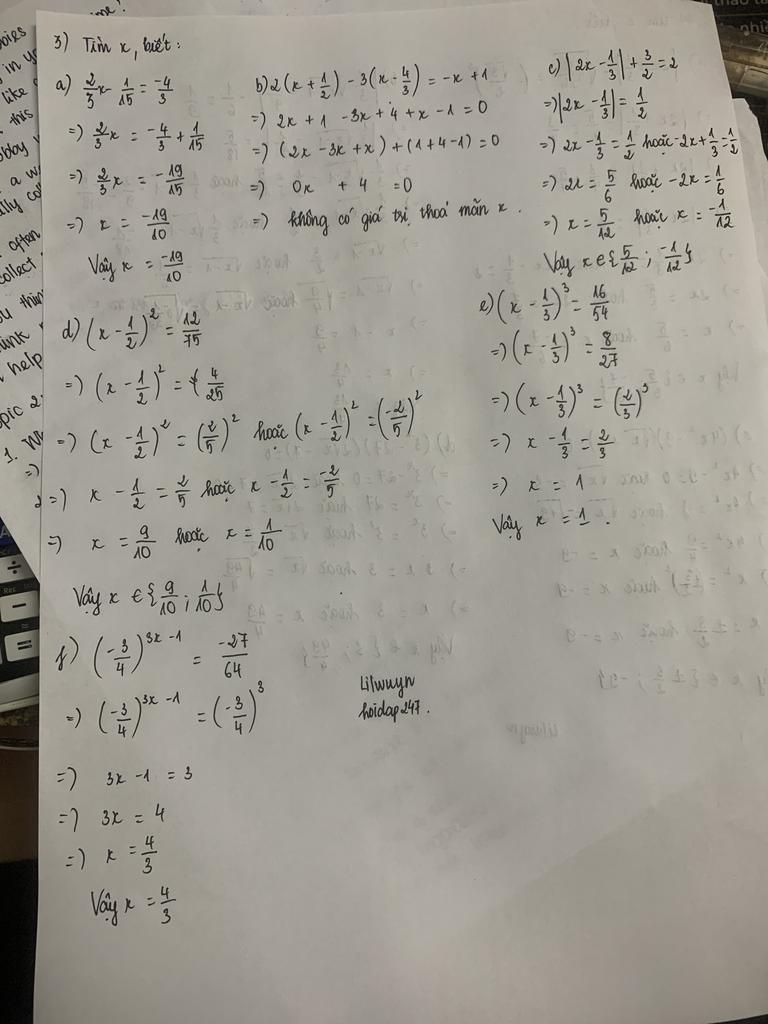 3) Tìm x, biết:
a) 2/3 x - 1/15 = -4/3
=) 2/3 x = -4/3 + 1/15
=) 2/3 x = -19/15
=) x = -19/10
Vậy x = -19/10
b) 2(x + 1/2) - 3(x - 4/3) = -x + 1
=) 2x + 1 - 3x + 4 + x - 1 = 0
=) (2x - 3x + x) + (1 + 4 - 1) = 0
=) 0x + 4 = 0
=) không có giá trị thoả mãn x.
c) |2x - 1/3| + 3/2 = 2
=) |2x - 1/3| = 1/2
=) 2x - 1/3 = 1/2 hoặc -2x + 1/3 = 1/2
=) 2x = 5/6 hoặc -2x = 1/6
=) x = 5/12 hoặc x = -1/12
Vậy x ∈ {5/12 ; -1/12}
d) (x - 1/2)² = 12/75
=) (x - 1/2)² = 4/25
=) (x - 1/2)² = (2/5)² hoặc (x - 1/2)² = (-2/5)²
=) x - 1/2 = 2/5 hoặc x - 1/2 = -2/5
=) x = 9/10 hoặc x = 1/10
Vậy x ∈ {9/10 ; 1/10}
e) (x - 1/3)³ = 16/54
=) (x - 1/3)³ = 8/27
=) (x - 1/3)³ = (2/3)³
=) x - 1/3 = 2/3
=) x = 1
Vậy x = 1.
f) (-3/4)^(3x - 1) = -27/64
=) (-3/4)^(3x - 1) = (-3/4)³
=) 3x - 1 = 3
=) 3x = 4
=) x = 4/3
Vậy x = 4/3
Lilwuyn
hoidap247.